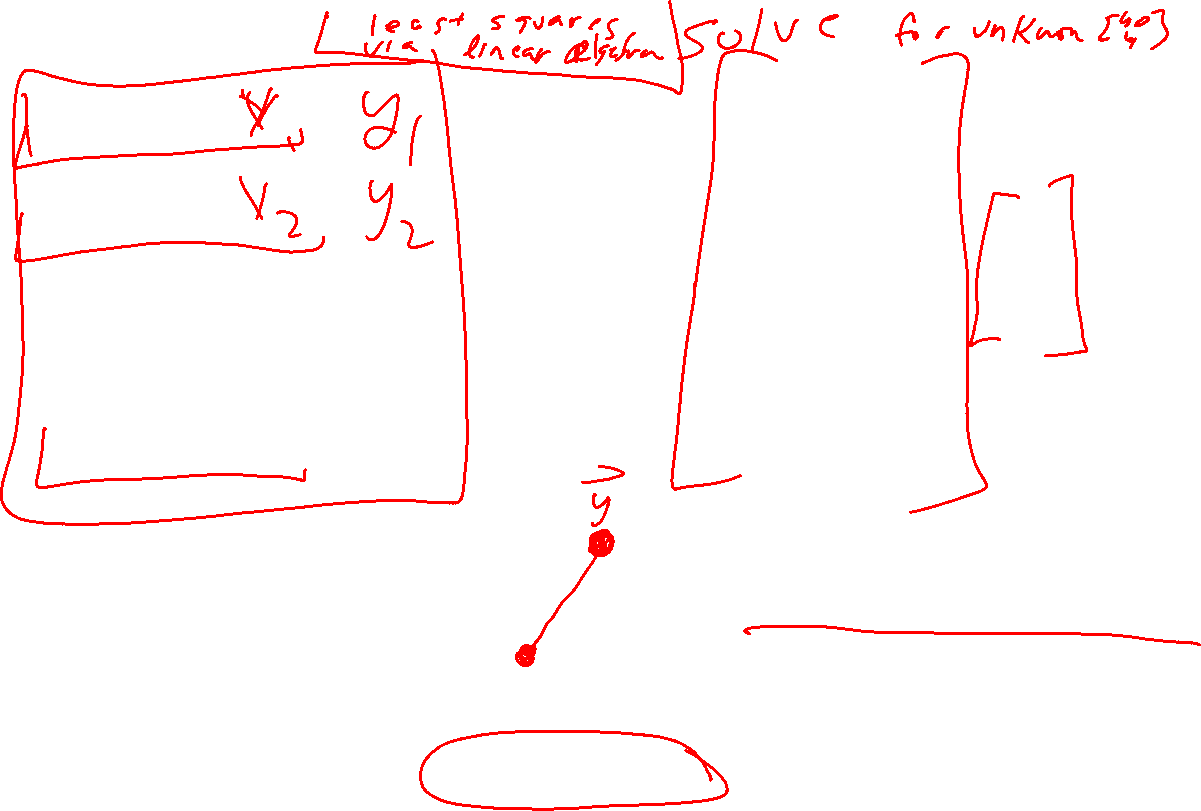 least squares
via linear algebra
Solve for unknown
1 y1
x2 y2
y